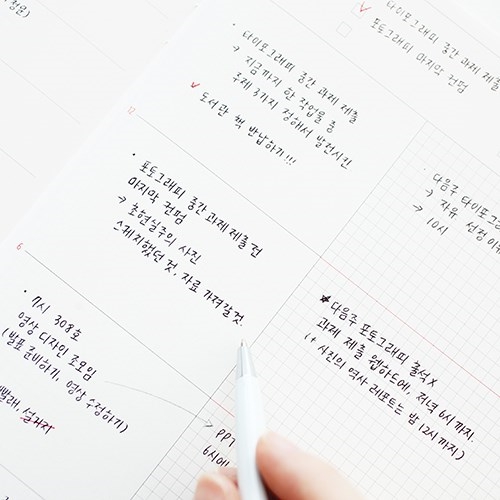 • 타이포그래피 중간 과제 제출
→ 지금까지 한 작업물 중
주제 3가지 정해서 발전시킨
✓ 도서관 책 반납하기!!!
✓ 타이포그래피 중간 과제
포토그래피 마지막 컨펌
12
• 포토그래피 중간 과제 제출 전
마지막 컨펌
→ 초현실주의 사진
스케치했던 것. 자료 가져갈 것.
다음주 타이포그래
→ 자유 선정
→ 10시
6
• 7시 308호
영상 디자인 조모임
(발표 준비하기, 영상 수정하기)
빨래, 설거지
★ 다음주 포토그래피 출석 X
과제 제출 웹하드에, 저녁 6시 까지.
(+ 사진의 역사 레포트는 밤 12시 까지)
PPT
6시에